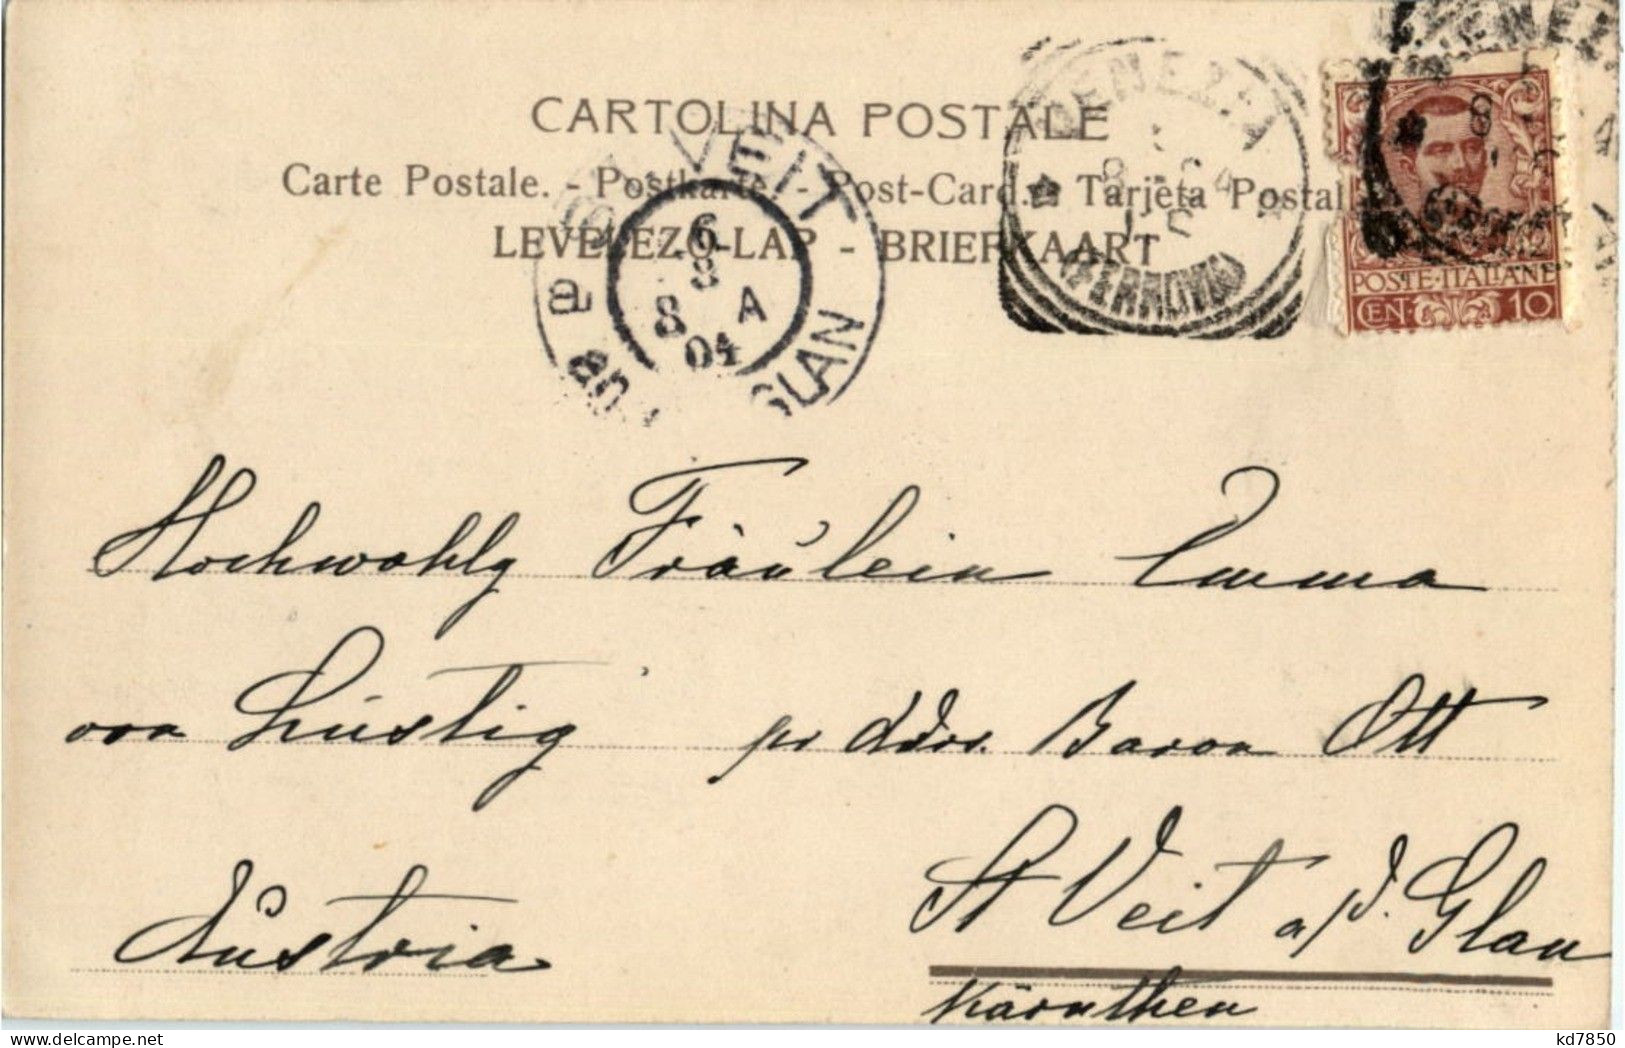 CARTOLINA POSTALE
Carte Postale. - Postkarte - Post-Card. - Tarjeta Postal
LEVELEZŐ-LAP - BRIEFKAART
VENEZIA
(FERROVIA)
ST. VEIT
GLAN
6
8
8 A
04
POSTE·ITALIANE
CEN· 10
Hochwohlg Fräulein Emma
von Lustig pr Adrs. Baron Ott
St Veit a/d. Glan
Austria
Kärnthen
kd7850